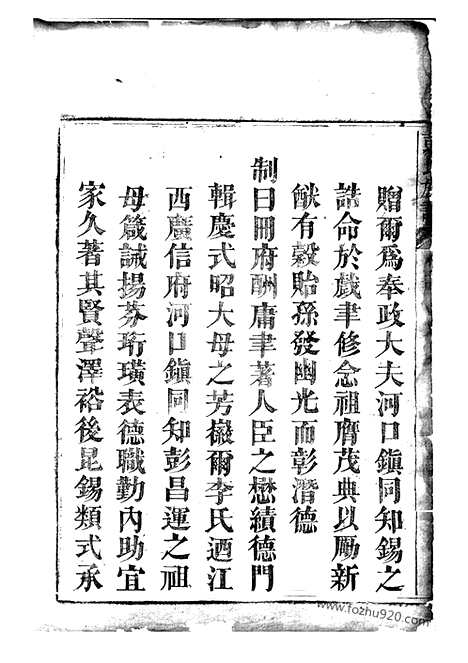 贈爾爲奉政大夫河口鎮同知錫之
誥命於戲聿修念祖膺茂典以勵新
猷有穀貽孫發幽光而彰潛德
制曰冊府酬庸聿著人臣之懋績德門
輯慶式昭大母之芳徽爾李氏迺江
西廣信府河口鎮同知彭昌運之祖
母箴誡揚芬珩璜表德職勤內助宜
家久著其賢聲澤裕後昆錫類式承
www.fozhu920.com